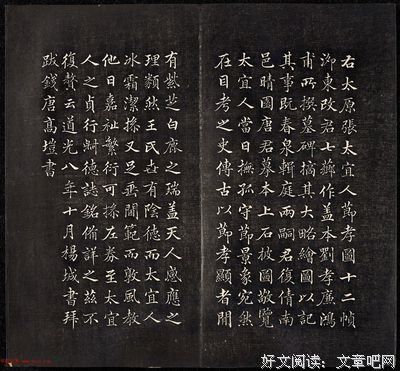 右太原張太宜人節孝圖十二幀
泖東改君七薌作蓋本劉孝廉鴻
甫所撰墓碑摘其大略繪圖以記
其事既春泉輯庭兩嗣君復倩南
邑晴園唐君摹本上石披圖敬覽
太宜人當日撫孤守節景象宛然
在目考之史傳古以節孝顯者間
有紫芝白麃之瑞蓋天人感應之
理類然王氏世有陰德而太宜人
冰霜潔操又足垂閫範而敦風教
他日嘉祉繁衍可操左券至太宜
人之貞行嗣德誌銘備詳之茲不
復贅云道光八年十月楊城書拜
跋錢唐高塏書
好文阅读：文章吧网